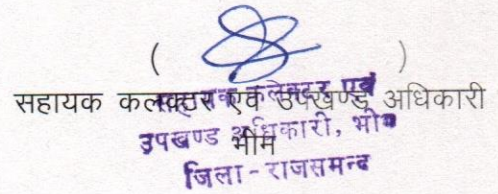 ( )
सहायक कलक्टर एवं उपखण्ड अधिकारी
भीम
सहायक कलक्टर एवं
उपखण्ड अधिकारी, भीम
जिला - राजसमन्द